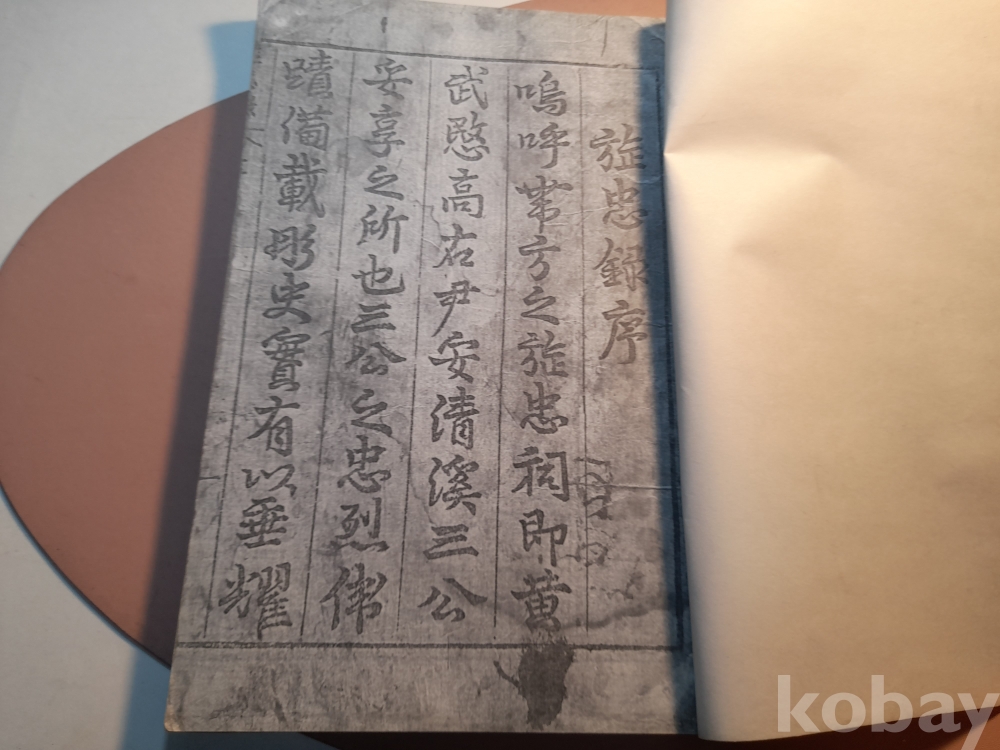 旌忠録序
嗚呼帶方之旌忠祠即黄
武愍高右尹安清溪三公
妥享之所也三公之忠烈偉
蹟備載彤史實有以垂耀
kobay